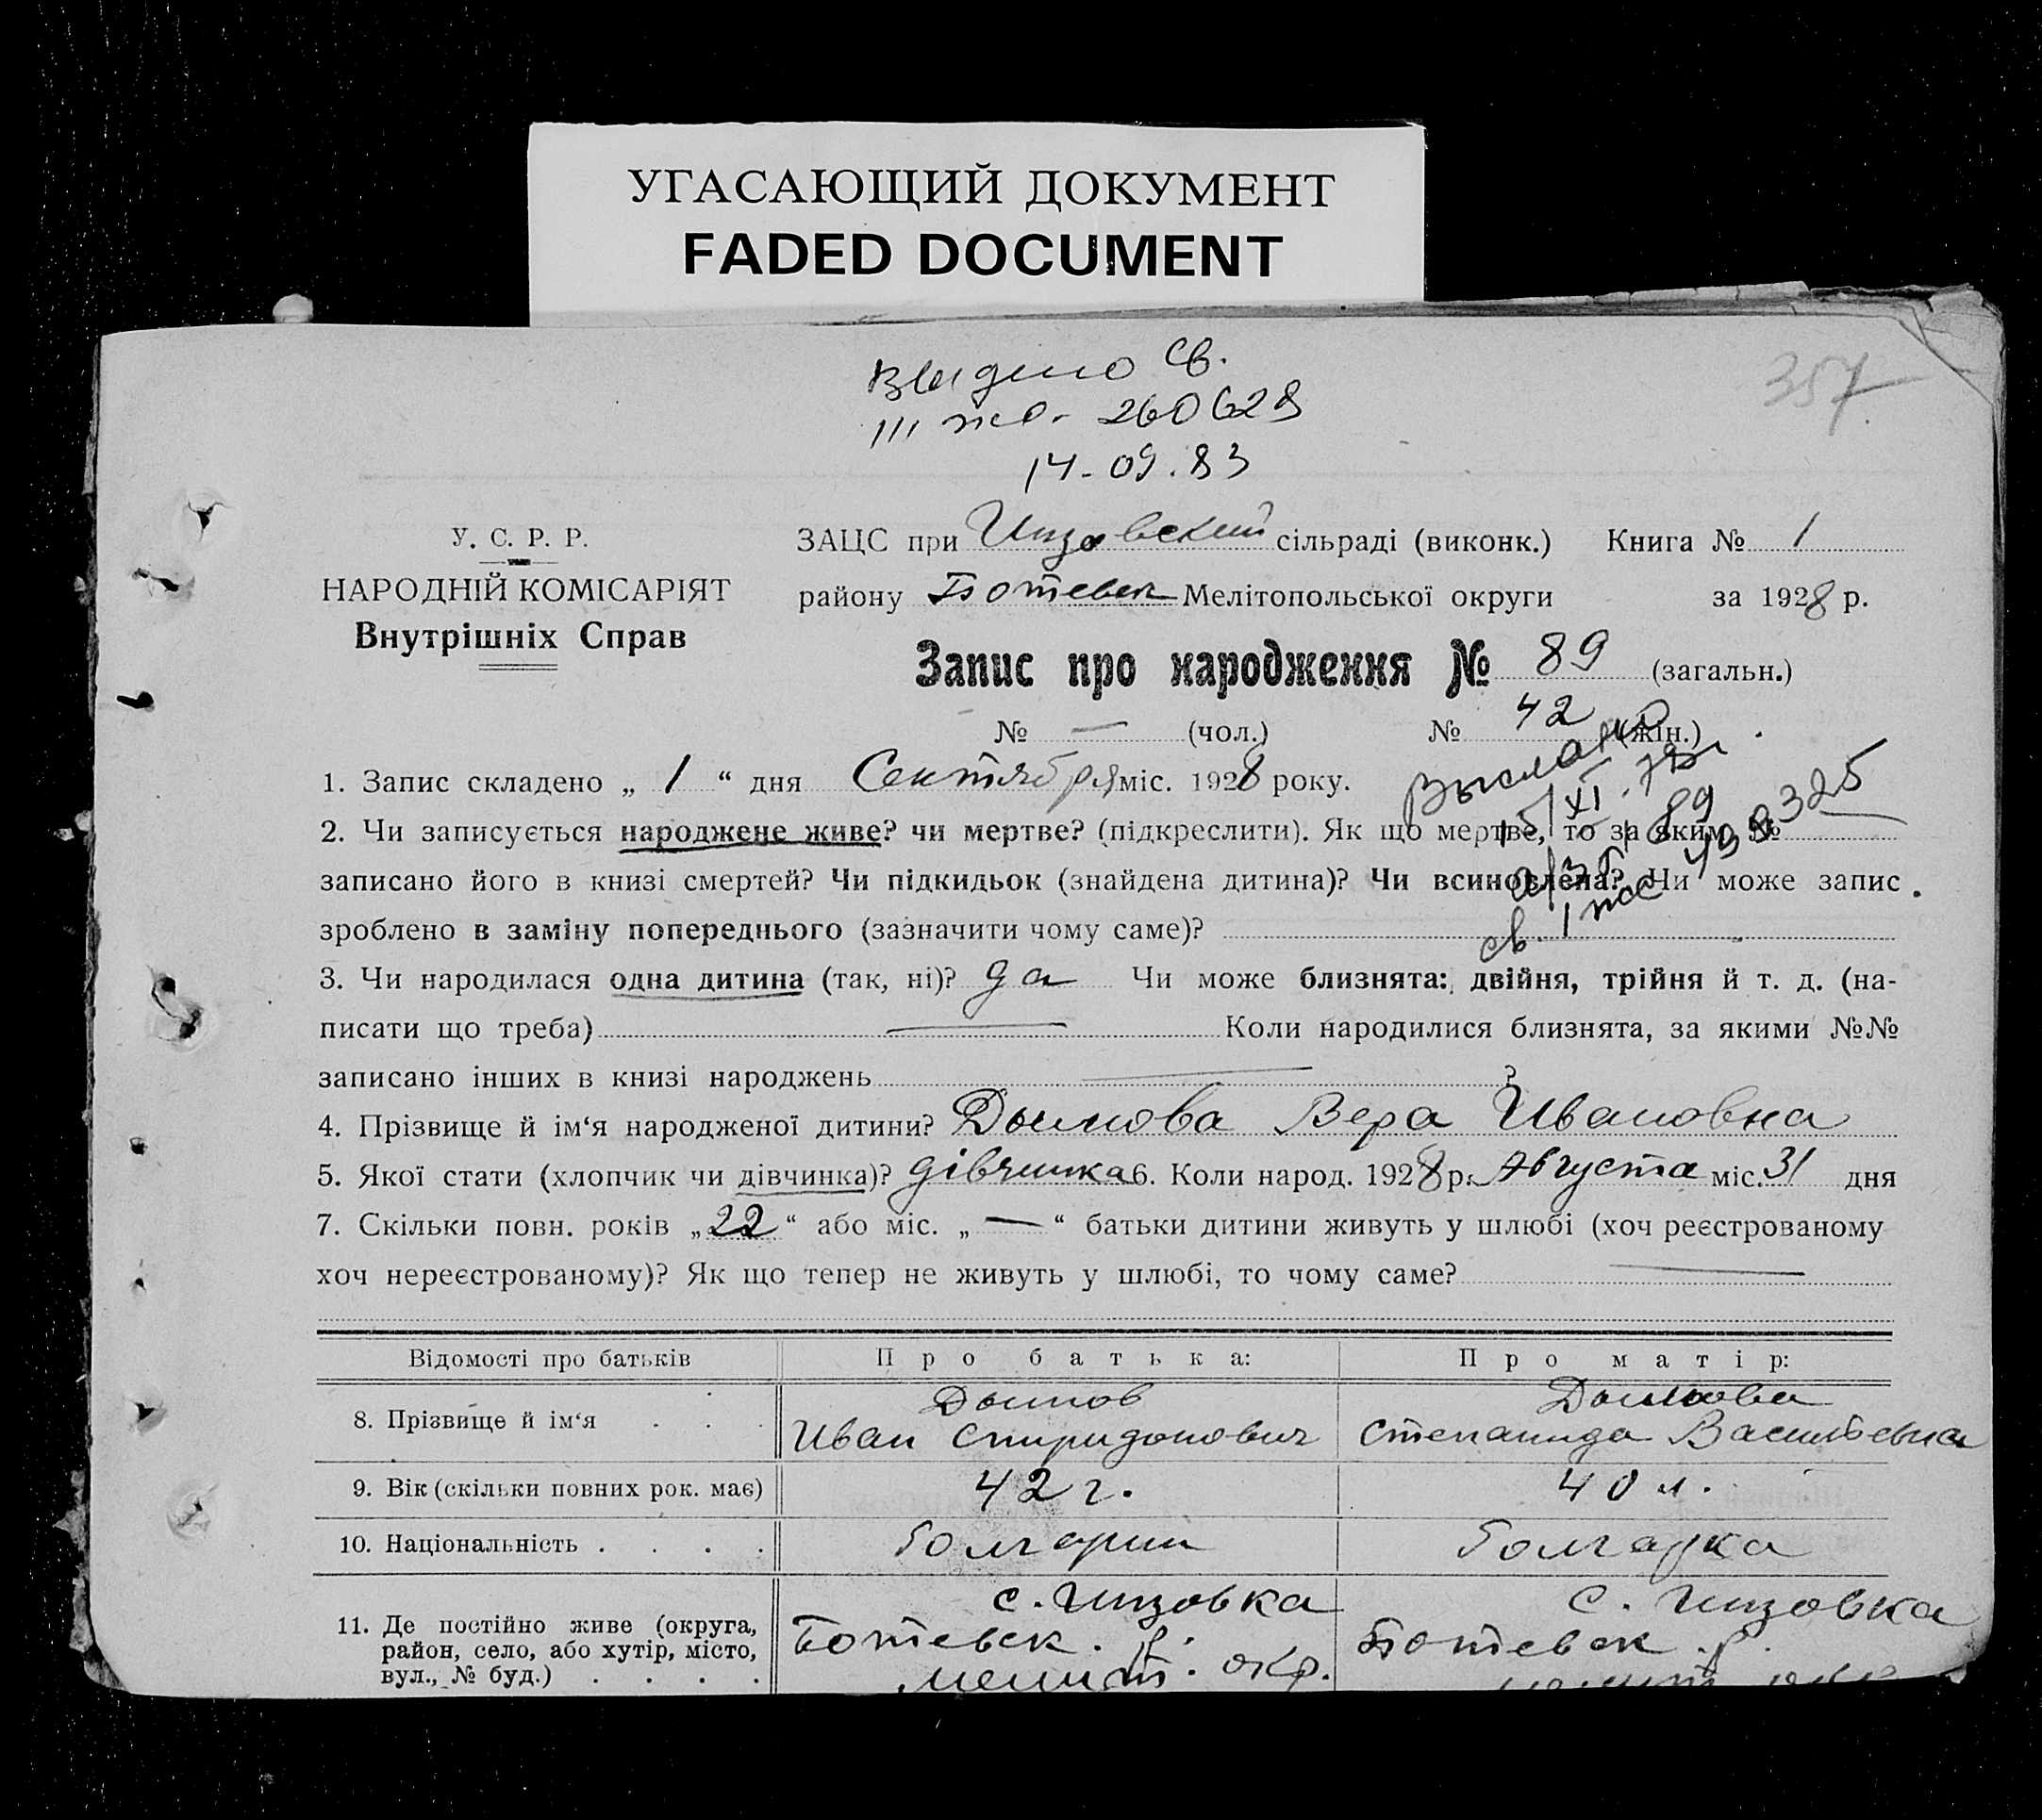 УГАСАЮЩИЙ ДОКУМЕНТ
FADED DOCUMENT
Выдано св.
III жс- 260628
14-09.83
357
У. С. Р. Р.
НАРОДНІЙ КОМІСАРІЯТ
Внутрішніх Справ
ЗАЦС при Инзовский сільраді (виконк.) Книга № 1
району Ботевск Мелітопольської округи за 1928 р.
Запис про народження № 89 (загальн.)
№ — (чол.) № 42 (жін.)
Выслано
1. Запис складено „ 1 “ дня Сентября міс. 1928 року.
2. Чи записується народжене живе? чи мертве? (підкреслити). Як що мертве, то за яким №
записано його в книзі смертей? Чи підкидьок (знайдена дитина)? Чи всиновлена? Чи може запис
зроблено в заміну попереднього (зазначити чому саме)?
3. Чи народилася одна дитина (так, ні)? да Чи може близнята: двійня, трійня й т. д. (на-
писати що треба) — Коли народилися близнята, за якими №№
записано інших в книзі народжень — ?
4. Прізвище й ім‘я народженої дитини? Дымова Вера Ивановна
5. Якої стати (хлопчик чи дівчинка)? дівчинка 6. Коли народ. 1928 р. Августа міс. 31 дня
7. Скільки повн. років „22“ або міс. „—“ батьки дитини живуть у шлюбі (хоч реєстрованому
хоч нереєстрованому)? Як що тепер не живуть у шлюбі, то чому саме? —
Відомості про батьків Про батька: Про матір:
8. Прізвище й ім‘я Дымов Иван Спиридонович Дымова Степанида Васильевна
9. Вік (скільки повних рок. має) 42 г. 40 л.
10. Національність болгарин болгарка
11. Де постійно живе (округа, район, село, або хутір, місто, вул., № буд.) с. Инзовка Ботевск. р. мелит. окр. с. Инзовка Ботевск. р.